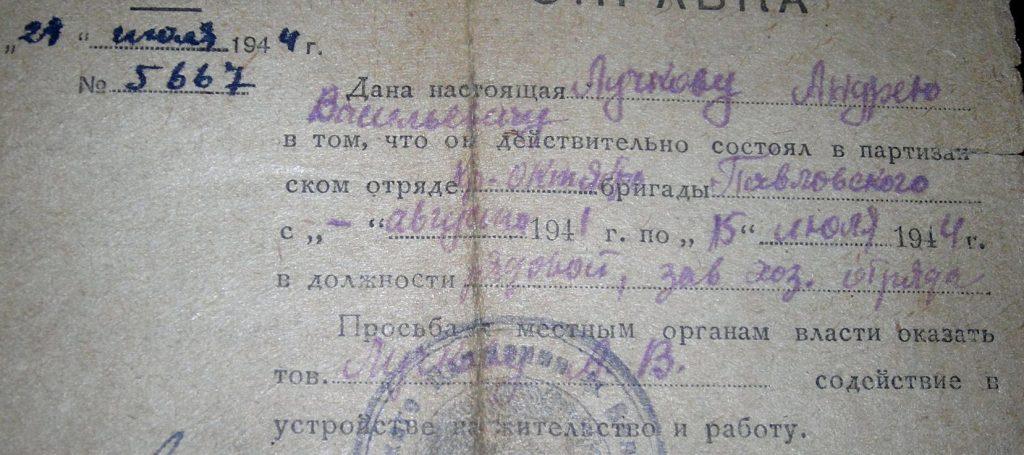 СПРАВКА
„21“ июля 1944 г.
№ 5667
Дана настоящая Лучкову Андрею
Васильевичу
в том, что он действительно состоял в партизан-
ском отряде Кр. Октябрь бригады Павловского
с „-“ августа 1941 г. по „15“ июля 1944 г.
в должности рядовой, зав хоз. отряда
Просьба к местным органам власти оказать
тов. Лучкову А. В. содействие в
устройстве на жительство и работу.